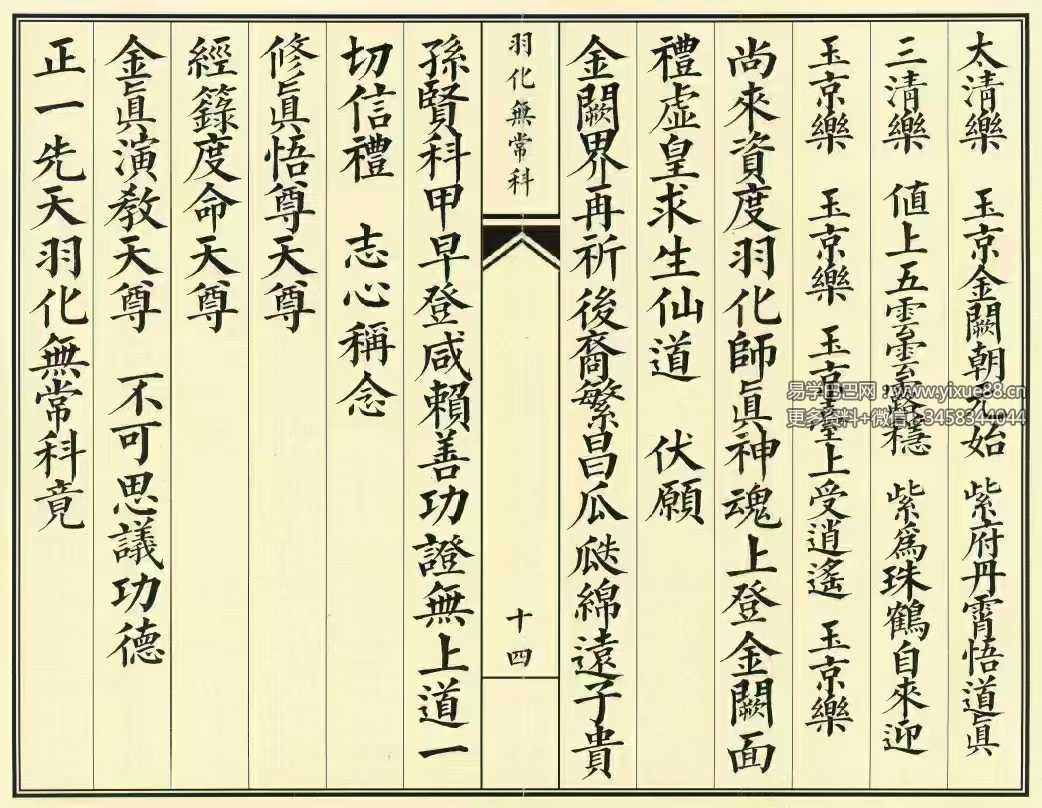 太清樂 玉京金闕朝元始 紫府丹霄悟道眞
三清樂 値上五雲雲穩 紫爲珠鶴自來迎
玉京樂 玉京樂 玉京臺上受逍遙 玉京樂
尚來資度羽化師眞神魂上登金闕面
禮虛皇求生仙道 伏願
金闕界再祈後裔繁昌瓜瓞綿遠子貴
羽化無常科
十四
孫賢科甲早登咸賴善功證無上道一
切信禮 志心稱念
修眞悟尊天尊
經籙度命天尊
金眞演教天尊 不可思議功德
正一先天羽化無常科竟
易学巴巴网：www.yixue88.cn
更多资料+微信：3458344044